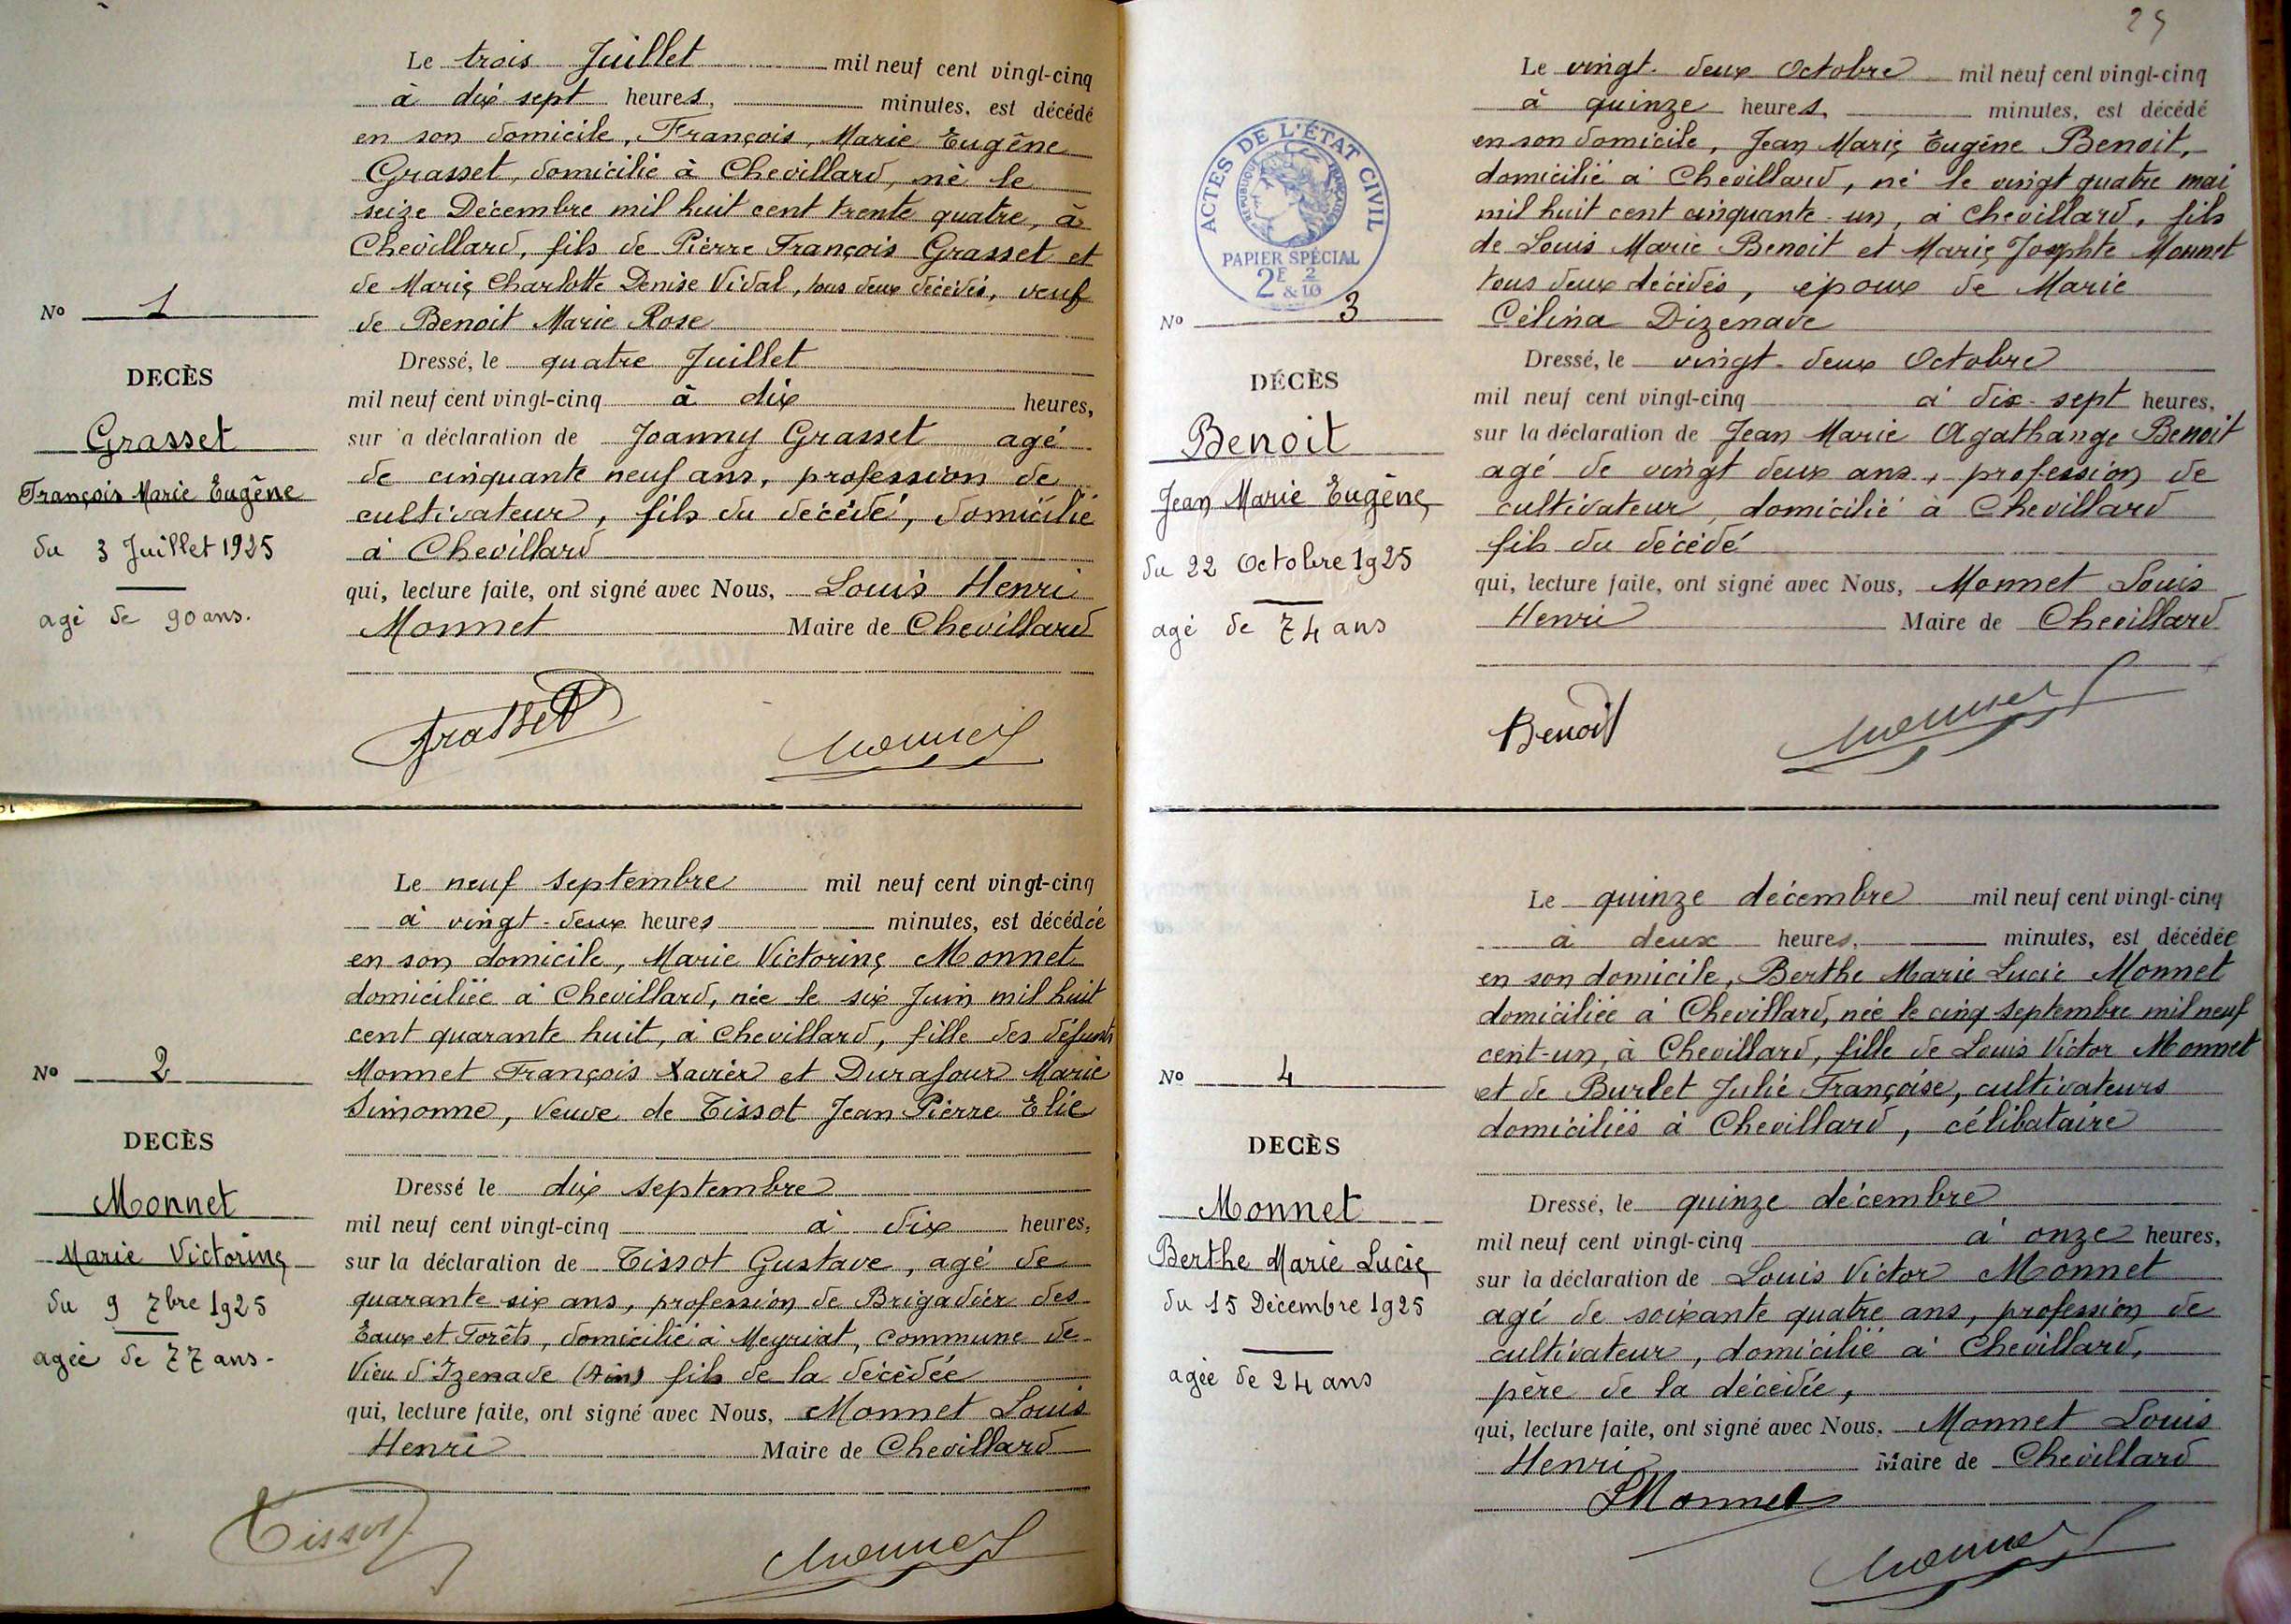 Le trois Juillet mil neuf cent vingt-cinq
à dix sept heures, minutes, est décédé
en son domicile, François, Marie Eugêne
Grasset, domicilié à Chevillard, né le
seize Décembre mil huit cent trente quatre, à
Chevillard, fils de Pierre François Grasset et
de Marie Charlotte Denise Vidal, tous deux décédés, veuf
de Benoit Marie Rose
Nº 1
DECÈS
Grasset
François Marie Eugêne
du 3 Juillet 1925
agé de 90 ans.
Dressé, le quatre Juillet
mil neuf cent vingt-cinq à dix heures,
sur a déclaration de Joanny Grasset agé
de cinquante neuf ans, profession de
cultivateur, fils du décédé, domicilié
à Chevillard
qui, lecture faite, ont signé avec Nous, Louis Henri
Monnet Maire de Chevillard
Grasset
Monnet
Le neuf septembre mil neuf cent vingt-cinq
à vingt-deux heures minutes, est décédée
en son domicile, Marie Victorine Monnet
domiciliée à Chevillard, née le six Juin mil huit
cent quarante huit, à Chevillard, fille des défunts
Monnet François Xavier et Durafour Marie
Simonne, Veuve de Tissot Jean Pierre Elie
Nº 2
DECÈS
Monnet
Marie Victorine
du 9 7bre 1925
agée de 77 ans.
Dressé le dix septembre
mil neuf cent vingt-cinq à dix heures,
sur la déclaration de Tissot Gustave, agé de
quarante six ans, profession de Brigadier des
Eaux et Forêts, domicilié à Meyriat, commune de
Vieu d'Izenade (Ain) fils de la décédée
qui, lecture faite, ont signé avec Nous, Monnet Louis
Henri Maire de Chevillard
Tissot
Monnet
25
ACTES DE L'ÉTAT CIVIL
RÉPUBLIQUE FRANÇAISE
PAPIER SPÉCIAL
2F & 2/10
Le vingt-deux Octobre mil neuf cent vingt-cinq
à quinze heures, minutes, est décédé
en son domicile, Jean Marie Eugène Benoit,
domicilié à Chevillard, né le vingt quatre mai
mil huit cent cinquante-un, à Chevillard, fils
de Louis Marie Benoit et Marie Josephte Monnet
tous deux décédés, époux de Marie
Célina Dizenade
Nº 3
DÉCÈS
Benoit
Jean Marie Eugène
du 22 Octobre 1925
agé de 74 ans
Dressé, le vingt-deux Octobre
mil neuf cent vingt-cinq à dix-sept heures,
sur la déclaration de Jean Marie Agathange Benoit
agé de vingt deux ans, profession de
cultivateur, domicilié à Chevillard
fils du décédé
qui, lecture faite, ont signé avec Nous, Monnet Louis
Henri Maire de Chevillard
Benoit
Monnet
Le quinze décembre mil neuf cent vingt-cinq
à deux heures, minutes, est décédée
en son domicile, Berthe Marie Lucie Monnet
domiciliée à Chevillard, née le cinq septembre mil neuf
cent-un, à Chevillard, fille de Louis Victor Monnet
et de Burlet Julie Françoise, cultivateurs
domiciliés à Chevillard, célibataire
Nº 4
DECÈS
Monnet
Berthe Marie Lucie
du 15 Décembre 1925
agée de 24 ans
Dressé, le quinze décembre
mil neuf cent vingt-cinq à onze heures,
sur la déclaration de Louis Victor Monnet
agé de soixante quatre ans, profession de
cultivateur, domicilié à Chevillard,
père de la décédée,
qui, lecture faite, ont signé avec Nous, Monnet Louis
Henri Maire de Chevillard
LMonnet
Monnet